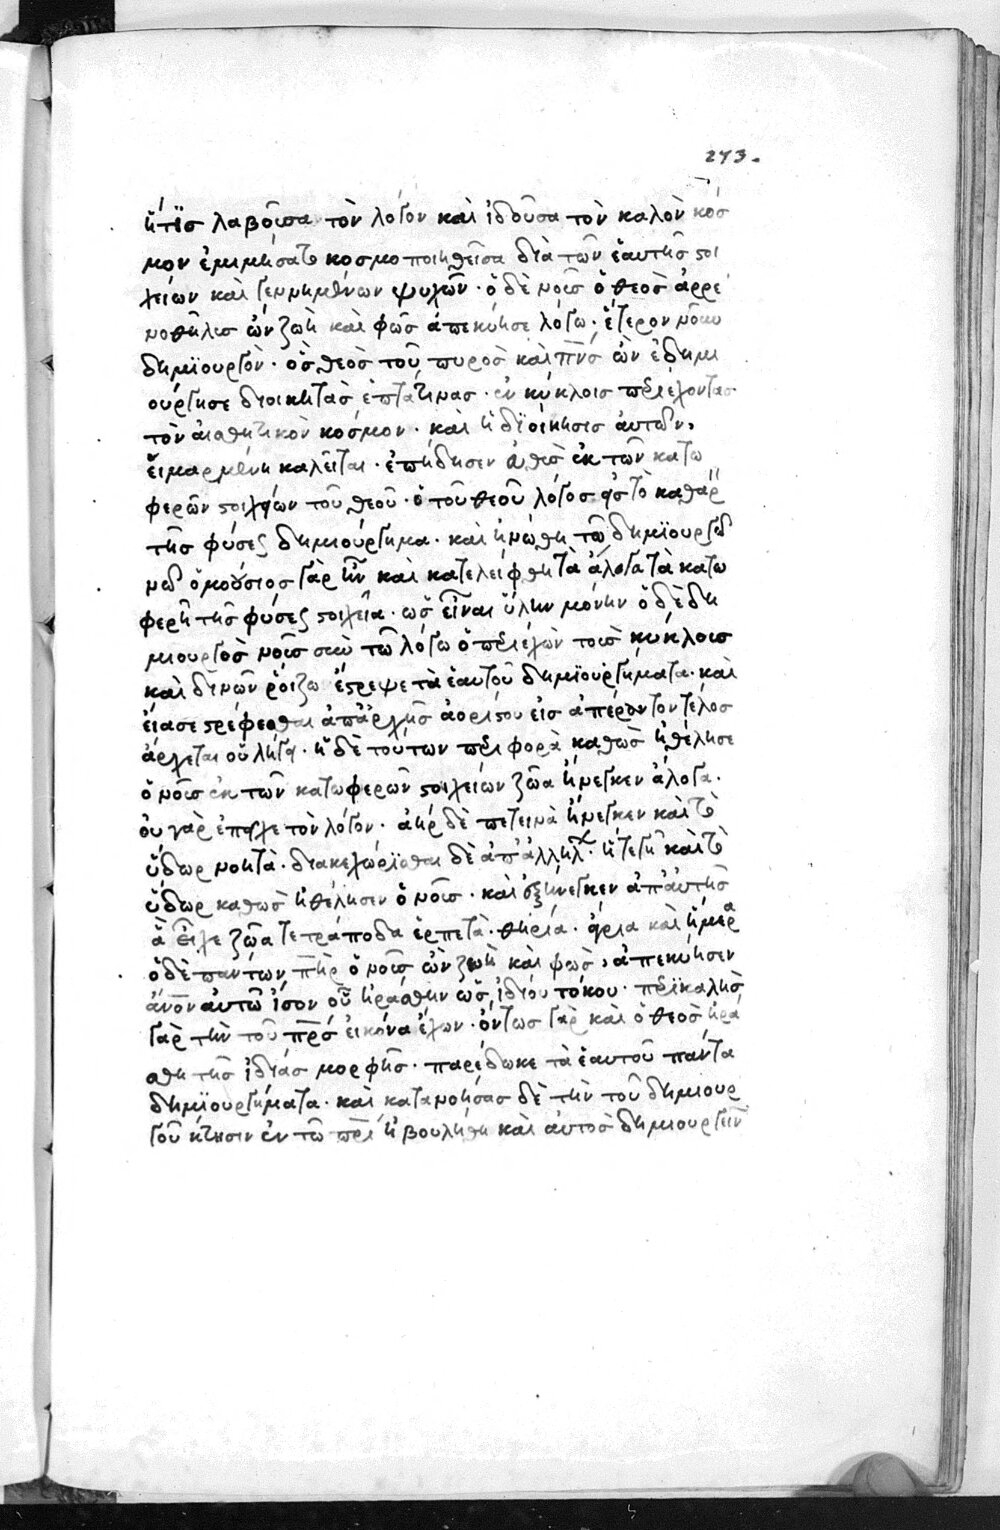 273.
ἥτις λαβοῦσα τὸν λόγον καὶ ἰδοῦσα τὸν καλὸν κόσ
μον ἐμιμήσατο κοσμοποιηθεῖσα διὰ τῶν ἑαυτῆς στοι
χείων καὶ γεννημάτων ψυχῶν · ὁ δὲ νοῦς ὁ θεὸς ἀρρε
νόθηλυς ὢν ζωὴ καὶ φῶς ἀπεκύησε λόγω · ἕτερον νοῦν
δημϊουργὸν · ὃς θεὸς τοῦ πυρὸς καὶ πν̅ς ὢν ἐδημι
ούργησε διοικητὰς ἑπτά τινας · ἐν κύκλοις περιέχοντας
τὸν αἰσθητικὸν κόσμον · καὶ ἡ διοίκησις αὐτῶν,
εἱμαρμένη καλεῖται · ἐπήδησεν εὐθὺς ἐκ τῶν κατω
φερῶν στοιχείων τοῦ θεοῦ · ὁ τοῦ θεοῦ λόγος εἰς τὸ καθαρ
τῆς φύσεως δημιούργημα · καὶ ἡνώθη τῶ δημϊουργῶ
νῶ ὁμοούσιος γὰρ ἦν καὶ κατελείφθη τὰ ἄλογα τὰ κατω
φερῆ τῆς φύσεως στοιχεῖα · ὡς εἶναι ὕλην μόνην ὁ δὲ δη
μιουργὸς νοῦς σὺν τῶ λόγω ὁ περιέχων τοὺς κύκλους
καὶ δινῶν ῥοίζω ἔστρεψε τὰ ἑαυτοῦ δημϊουργήματα · καὶ
εἴασε στρέφεσθαι ἀπ' ἀρχῆς ἀορίστου εἰς ἀπέραντον τέλος
ἄρχεται οὗ λήγει · ἡ δὲ τούτων περιφορὰ καθὼς ἠθέλησε
ὁ νοῦς ἐκ τῶν κατωφερῶν στοιχείων ζῶα ἤνεγκεν ἄλογα.
οὐ γὰρ ἐπεῖχε τὸν λόγον · ἀὴρ δὲ πετεινὰ ἤνεγκεν καὶ τὸ
ὕδωρ νηκτὰ · διακεχώρισθαι δὲ ἀπ' ἀλλήλων · ἥ τε γῆ καὶ τὸ
ὕδωρ καθὼς ἠθέλησεν ὁ νοῦς · καὶ ἐξήνεγκεν ἀπ' αὐτῆς
ἃ εἶχε ζῶα τετράποδα ἑρπετὰ · θηρία · ἄγρια καὶ ἥμερα
ὁ δὲ πάντων πη̅ρ ὁ νοῦς ὢν ζωὴ καὶ φῶς, ἀπεκύησεν
ἄν̅ον αὐτῶ ἴσον οὗ ἠράσθην ὡς ἰδίου τόκου · περικαλὴς
γὰρ τὴν τοῦ πρ̅ς εἰκόνα ἔχων · ὄντως γὰρ καὶ ὁ θεὸς ἠρά
σθη τῆς ἰδίας μορφῆς · παρέδωκε τὰ ἑαυτοῦ πάντα
δημϊουργήματα · καὶ κατανοήσας δὲ τὴν τοῦ δημιουρ
γοῦ κτῆσιν ἐν τῶ πρ̅ι ἠβουλήθη καὶ αὐτὸς δημιουργεῖν